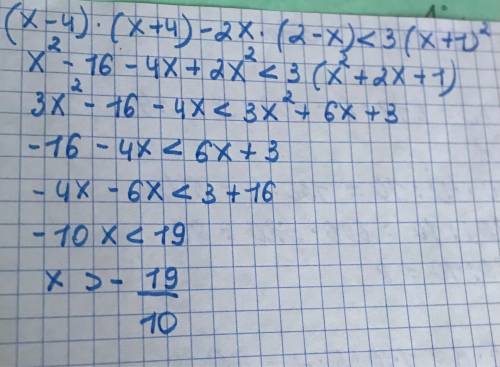 (x-4)·(x+4)-2x·(2-x)<3(x+1)²
x²-16-4x+2x²<3(x²+2x+1)
3x²-16-4x<3x²+6x+3
-16-4x<6x+3
-4x-6x<3+16
-10x<19
x>-19/10